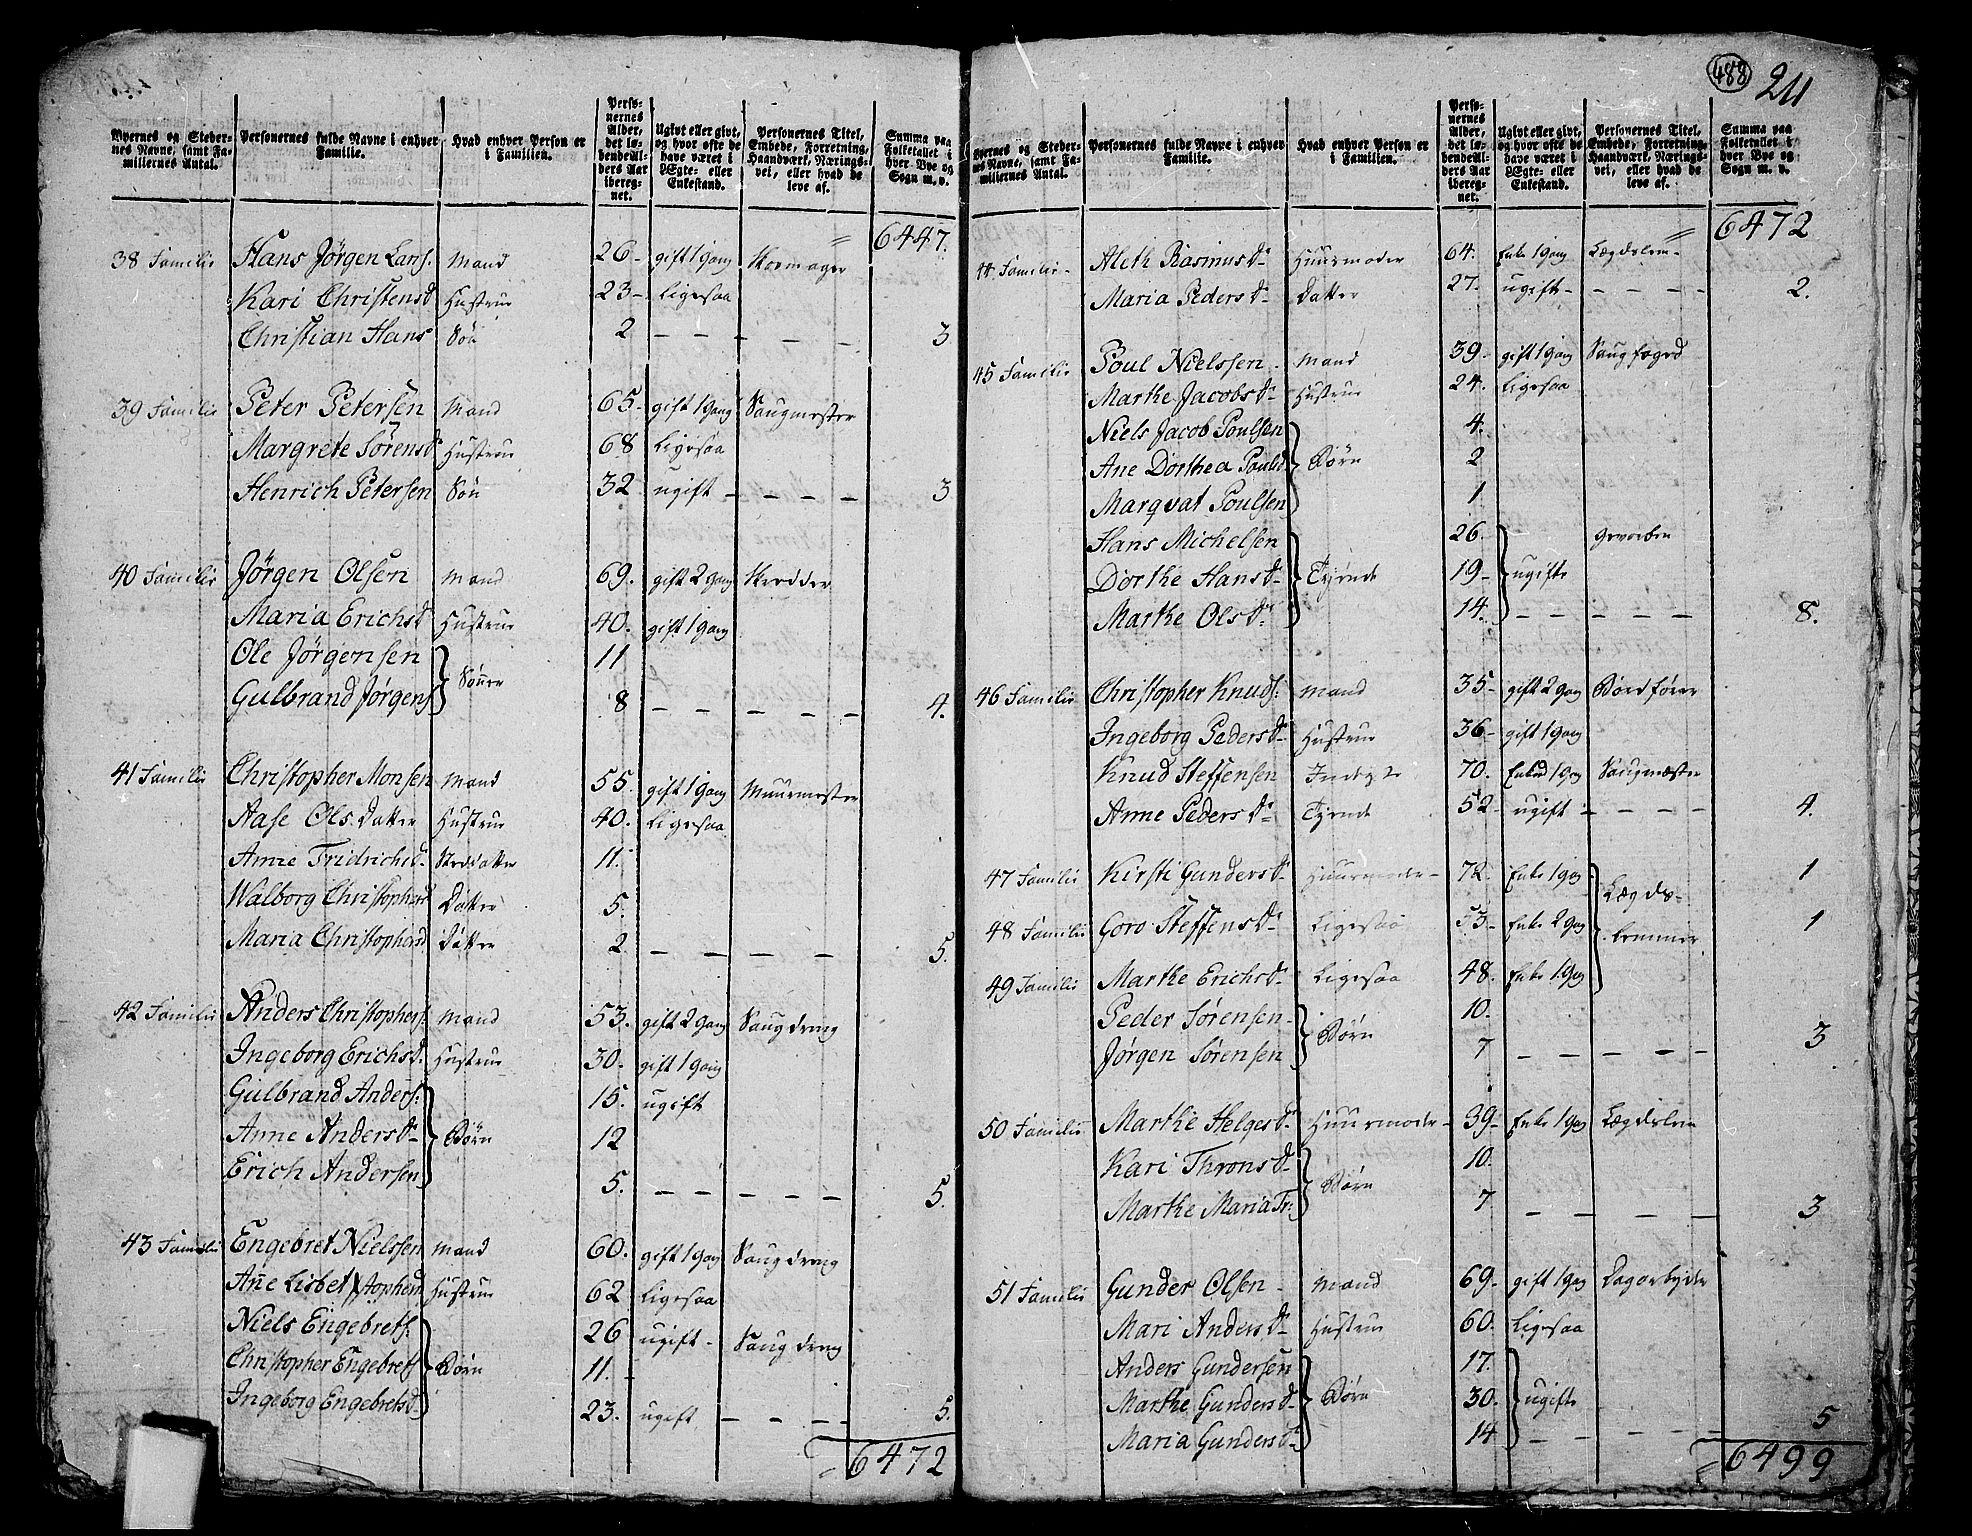 488 211
Byernes og Stedernes Navne, samt Familiernes Antal. Personernes fulde Navne i enhver Familie. Hvad enhver Person er i Familien. Personernes Alder, det løbendeAlders Aar iberegnet. Ugivt eller givt, og hvor ofte de have været i Ægte- eller Enkestand. Personernes Titel, Embede, Forretning, Haandværk, Næringsvei, eller hvad de leve af. Summa paa Folketallet i hver Bye og Sogn m. v.
6447.
38 Familie Hans Jörgen Lars. Mand 26- gift 1 gang Skomager
Kari Christensd Hustrue 23- Ligesaa
Christian Hans Sön 2 - - - - - 3
39 Familie Peter Petersen Mand 65- gift 1 gang Saugmester
Margrete Sörensd Hustrue 68 Ligesaa
Henrich Petersen Sön 32 ugift - - - - 3
40 Familie Jörgen Olsen Mand 69. gift 2 gang Skredder
Maria Erichsd Hustrue 40. gift 1 gang
Ole Jörgensen } Sönne 11
Gulbrand Jörgens. 8 - - - - - 4.
41 Familie Christopher Monsen Mand 55. gift 1 gang Muurmester
Aase Ols Datter Hustrue 40. Ligesaa
Anne Fridrichsd. Steddatter 11.
Walborg Christophersd Datter 5.
Maria Christophersd Datter 2 - - - - - 5.
42 Familie Anders Christophers: Mand 53. gift 2 gang Saugdreng
Ingeborg Erichsd. Hustrue 30. gift 1 gang
Gulbrand Anders: 15. ugift
Anne Andersd. } Börn 12
Erich Andersen 5. - - - - - - 5.
43 Familie Engebret Nielssen Mand 60. gift 1 gang Saugdreng
Anne Lisbet Stophersd Hustrue 62 Ligesaa
Niels Engebrets: 26 ugift - Saugdreng
Christopher Engebrets } Börn 11.
Ingeborg Engebretsd- 23. ugift - - - - 5.
6472
Byernes og Stedernes Navne, samt Familiernes Antal. Personernes fulde Navne i enhver Familie. Hvad enhver Person er i Familien. Personernes Alder, det løbendeAlders Aar iberegnet. Ugivt eller givt, og hvor ofte de have været i Ægte- eller Enkestand. Personernes Titel, Embede, Forretning, Haandværk, Næringsvei, eller hvad de leve af. Summa paa Folketallet i hver Bye og Sogn m. v.
6472
44 Familie- Aleth Rasmusd- Huusmoder 64. Enke 1 gang Lægdslem-
Maria Pedersd- Datter 27. ugift - - - - - 2.
45 Familie Poul Nielssen Mand 39- gift 1 gang Saugfoged
Marthe Jacobsd- Hustrue 24. Ligesaa
Niels Jacob Poulsen 4.
Ane Dorthea Poulsd } Börn 2
Marqvat Poulsen 1
Hans Michelsen 26. gevorben
Dorthe Hansd- } Tyende 19- } ugifte
Marthe Olsd- 14. - - - - - 8.
46 Familie Christopher Knuds: Mand 35- gift 2 gang Bordförer
Ingeborg Pedersd- Hustrue 36- gift 1 gang
Knud Steffensen 70. Enkem 1 gang Saugmester
Anne Pedersd- Tyende 52- ugift - - - - 4.
47 Familie Kirsti Gundersd- Huusmoder- 72- Enke 1 gang } Lægds- 1
48 Familie Goro Steffensd- Ligesaa 53- Enke 2 gang lemmer 1
49 Familie Marthe Erichsd- Ligesaa 48. Enke 1 gang
Peder Sörensen- } Börn 10.
Jörgen Sörensen 7 - - - - - - 3
50 Familie Marthe Helgesd- Huusmoder- 39- Enke 1 gang Lægdslem
Kari Thronsd- } Börn 10.
Marthe Maria Tr: 7 - - - - - 3
51 Familie Gunder Olsen- Mand 69- gift 1 gang Dagarbejder
Mari Andersd- Hustrue 60. Ligesaa
Anders Gundersen 17.
Marthe Gundersd- } Börn 30. } ugifte
Maria Gundersd- 14 - - - - - 5
6499